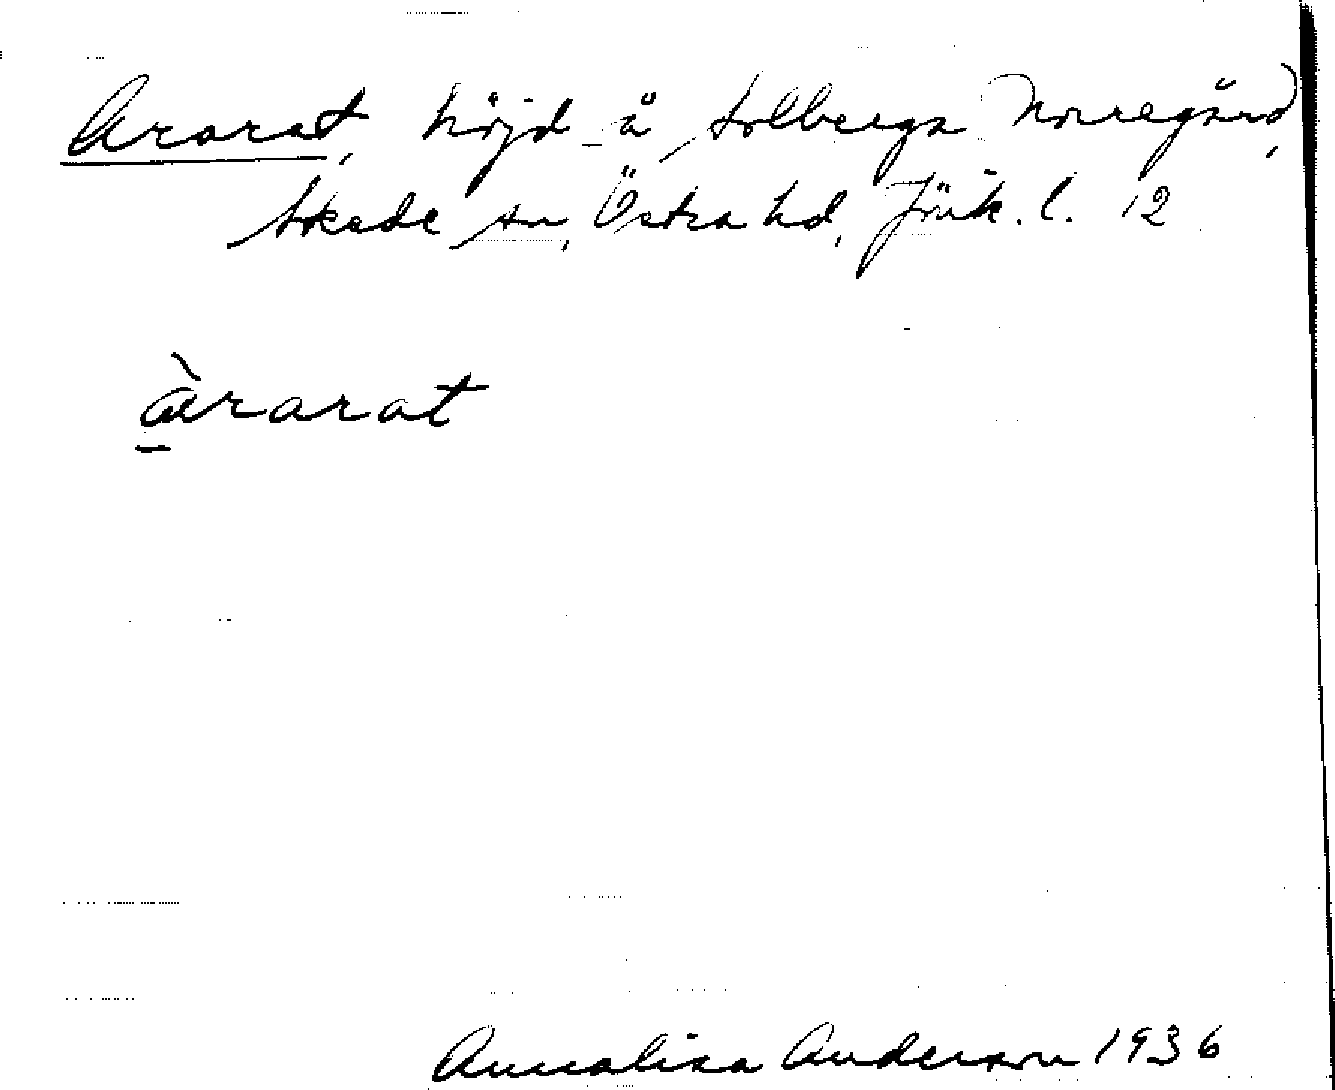 Ararat, höjd å Solberga Norregård,
Skede sn, Östra hd, Jönk. l. 12
àrarat
Annalisa Anderson 1936